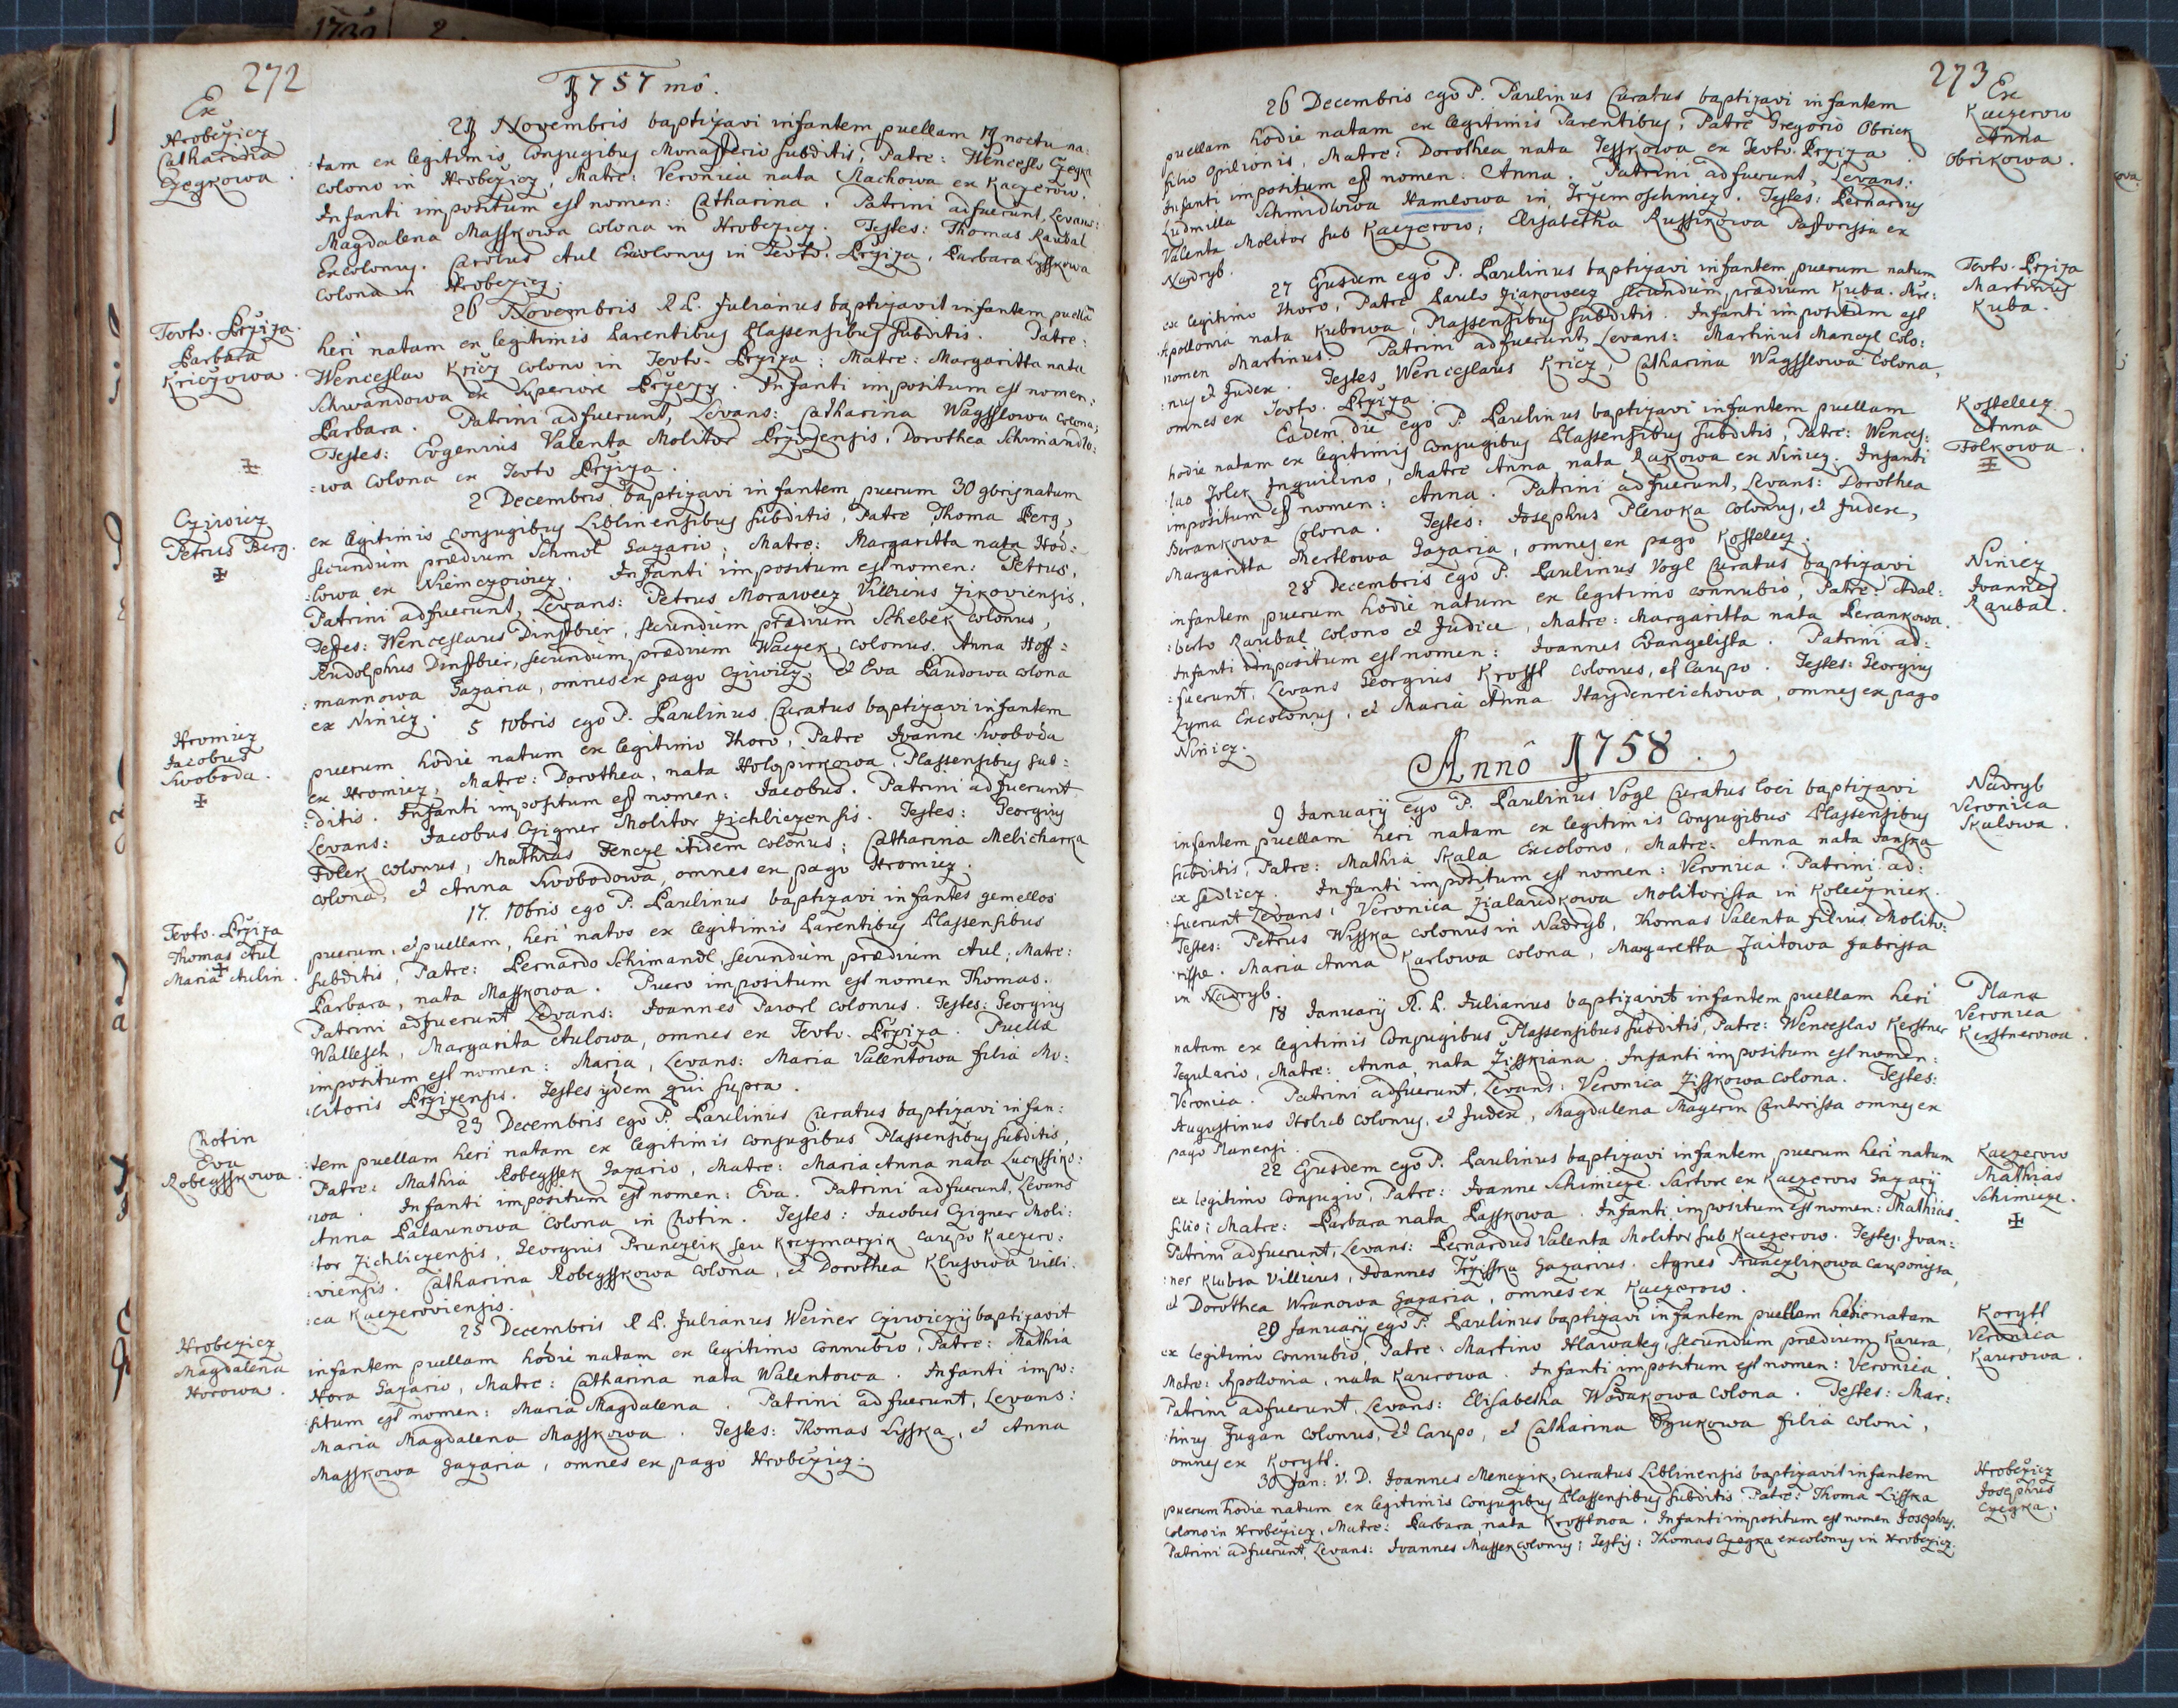 272
1757 mo.
Ex
Hrobczicz
Catharina
Czegkowa.
21 Novembris baptizavi infantem puellam 19 noctu na:
:tam ex legitimis Conjugibus Monasterio subditis, Patre: Wenceslo Czegka
colono in Hrobczicz, Matre: Veronica nata Stachowa ex Kaczerow.
Infanti impositum est nomen: Catharina. Patrini adfuerunt, Levans:
Magdalena Masskowa colona in Hrobczicz. Testes: Thomas Raubal
Excolonus. Carolus Aul Excolonus in Teuto. Brziza, Barbara Lysskowa
colona in Hrobczicz.
Teuto. Brziza.
Barbara
Kriczowa.
26 Novembris R.P. Julianus baptizavit infantem puellã
heri natam ex legitimis Parentibus Plassensibus subditis. Patre:
Wenceslao Kricz colono in Teuto. Brziza: Matre: Margaritta nata
Schwandowa ex Superiore Brzezy. Infanti impositum est nomen:
Barbara. Patrini adfuerunt, Levans: Catharina Wagsslowa colona,
Testes: Evgenius Valenta Molitor Brzizensis, Dorothea Schmandlo:
:wa colona ex Teuto Brziza.
Cziwicz
Petrus Berg.
2 Decembris baptizavi infantem puerum 30 9bris natum
ex legitimis conjugibus Liblinensibus subditis, Patre Thoma Berg,
secundum prædium Schmol Gazario; Matre: Margaritta nata Hod:
:lowa ex Niemczowicz. Infanti impositum est nomen: Petrus.
Patrini adfuerunt, Levans: Petrus Morawecz Villicus Zikoviensis,
Testes: Wenceslaus Dinstbier, secundum prædium Schebek colonus,
Rudolphus Dinstbier, secundum prædium Waczek, colonus. Anna Hoff:
:mannowa Gazaria, omnes ex pago Cziwicz, et Eva Landowa colona
ex Ninicz.
Hromicz
Jacobus
Swoboda.
5 10bris ego P. Paulinus Curatus baptizavi infantem
puerum hodie natum ex legitimo Thoro, Patre Joanne Swoboda
ex Hromicz, Matre: Dorothea, nata Holopirkowa, Plassensibus sub:
:ditis. Infanti impositum est nomen: Jacobus. Patrini adfuerunt
Levans: Jacobus Czigner Molitor Zichliczensis. Testes: Georgius
Folek colonus, Mathias Fenczl itidem colonus; Catharina Melicharka
colona, et Anna Swobodowa, omnes ex pago Hromicz.
Teuto. Brziza
Thomas Aul
Maria Aulin.
17. 10bris ego P. Paulinus baptizavi infantes gemellos
puerum, et puellam, heri natos ex legitimis Parentibus Plassensibus
subditis, Patre: Bernardo Schimandl, secundum prædium Aul, Matre:
Barbara, nata Masskowa. Puero impositum est nomen Thomas.
Patrini adfuerunt Levans: Joannes Pawrl colonus. Testes: Georgius
Wallesch, Margarita Aulowa, omnes ex Teuto. Brziza. Puellæ
impositum est nomen: Maria, Levans: Maria Valentowa filia Mo:
:litoris Brzizensis. Testes ijdem qui supra.
Chotin
Eva
Robegsskowa.
23 Decembris ego P. Paulinus Curatus baptizavi infan:
:tem puellam heri natam ex legitimis conjugibus Plassensibus subditis,
Patre: Mathia Robegssek Gazario, Matre: Maria Anna nata Lucksfiko:
:wa. Infanti impositum est nomen: Eva. Patrini adfuerunt, Levans
Anna Palaunowa Colona in Chotin. Testes: Jacobus Czigner Moli:
:tor Zichliczensis, Georgius Prunczlik seu Krczmarzik caupo Kaczero:
:viensis. Catharina Robegsskowa colona, et Dorothea Klusowa Villi:
:ca Kaczeroviensis.
Hrobczicz
Magdalena
Horowa.
25 Decembris R.P. Julianus Weiner Cziwiczÿ baptizavit
infantem puellam hodie natam ex legitimo Connubio, Patre: Mathia
Hora Gazario, Matre: Catharina nata Walentowa. Infanti impo:
:situm est nomen: Maria Magdalena. Patrini adfuerunt, Levans:
Maria Magdalena Masskowa. Testes: Thomas Lysska, et Anna
Masskowa Gazaria, omnes ex pago Hrobczicz.
273
Ex
Kaczerow
Anna
Obrikowa.
26 Decembris ego P. Paulinus Curatus baptizavi infantem
puellam hodie natam ex legitimis Parentibus, Patre Gregorio Obrick
filio Opilionis, Matre: Dorothea nata Tesskowa ex Teuto. Brziza.
Infanti impositum est nomen: Anna. Patrini adfuerunt, Levans:
Ludmilla Schmidlowa Hamlowa in Trzemoschnicz. Testes: Bernardus
Valenta Molitor sub Kaczerow; Elisabetha Russikowa Pastorissa ex
Nadryb.
Teuto. Brziza
Martinus
Kuba.
27 Ejusdem ego P. Paulinus baptizavi infantem puerum natum
ex legitimo Thoro, Patre Paulo Ziakowecz secundum prædium Kuba. Ma:
Apollonia nata Kubowa, Plassensibus subditis. Infanti impositum est
nomen Martinus. Patrini adfuerunt, Levans: Martinus Manczl Colo:
:nus et Judex. Testes Wenceslaus Kricz, Catharina Wagsslowa colona,
omnes ex Teuto. Brziza.
Kosstelecz
Anna
Folkowa.
Eadem die ego P. Paulinus baptizavi infantem puellam
hodie natam ex legitimis Conjugibus Plassensibus subditis, Patre: Wences:
:lao Folek Inquilino, Matre Anna, nata Rukowa ex Ninicz. Infanti
impositum est nomen: Anna. Patrini adfuerunt, Levans: Dorothea
Berankowa colona. Testes: Josephus Plewka colonus, et Judex,
Margaritta Mertlowa Gazaria, omnes ex pago Kosstelecz.
Ninicz
Joannes
Raubal.
28 Decembris ego P. Paulinus Vogl Curatus baptizavi
infantem puerum hodie natum ex legitimo connubio, Patre: Adal:
:berto Raubal colono et Judice, Matre: Margaritta nata Berankowa.
Infanti impositum est nomen: Joannes Evangelista. Patrini ad:
:fuerunt, Levans Georgius Krosfl colonus, et Caupo. Testes: Georgius
Zyma Excolonus, et Maria Anna Haydenreichowa, omnes ex pago
Ninicz.
Anno 1758.
Nadryb
Veronica
Skalowa.
9 Januarÿ ego P. Paulinus Vogl Curatus loci baptizavi
infantem puellam heri natam ex legitimis Conjugibus Plassensibus
subditis, Patre: Mathia Skala Excolono, Matre: Anna nata Janska
ex Sedlicz. Infanti impositum est nomen: Veronica. Patrini ad:
:fuerunt Levans: Veronica Zialaudkowa Molitorissa in Koleczniek.
Testes: Petrus Wisska colonus in Nadryb, Thomas Valenta filius Molito:
:rissæ. Maria Anna Karlowa colona, Margaretta Jaitowa fabrissa
in Nadryb.
Plana
Veronica
Kerstnerowa.
18 Januarÿ R.P. Julianus baptizavit infantem puellam heri
natam ex legitimis Conjugibus Plassensibus subditis, Patre: Wenceslao Kerstner
Tegulario, Matre: Anna, nata Zisskiana. Infanti impositum est nomen:
Veronica. Patrini adfuerunt, Levans: Veronica Zisskowa colona. Testes:
Augustinus Holub colonus, et Judex, Magdalena Mayerin Cantorissa omnes ex
pago Planensi.
Kaczerow
Mathias
Schimicze.
22 Ejusdem ego P. Paulinus baptizavi infantem puerum heri natum
ex legitimo Conjugio, Patre: Joanne Schimicze Sartore ex Kaczerow Gazarÿ
filio: Matre: Barbara nata Passkowa. Infanti impositum est nomen: Mathias.
Patrini adfuerunt, Levans: Bernardus Valenta Molitor sub Kaczerow. Testes: Joan:
:nes Klubsa Villicus, Joannes Trzisska Gazarius. Agnes Prunczlikowa cauponissa,
et Dorothea Wranowa Gazaria, omnes ex Kaczerow.
Korytl
Veronica
Kaurowa.
29 Januarÿ ego P. Paulinus baptizavi infantem puellam hodie natam
ex legitimo connubio, Patre: Martino Hlawatey, secundum prædium Kaura,
Matre: Apollonia, nata Kaurowa. Infanti impositum est nomen: Veronica.
Patrini adfuerunt, Levans: Elisabetha Wodakowa Colona. Testes: Mar:
:tinus Fugan colonus, et Caupo, et Catharina Dzukowa filia coloni,
omnes ex Korytl.
Hrobczicz
Josephus
Czegka.
30 Jan: V. D. Joannes Menczik, curatus Liblinensis baptizavit infantem
puerum hodie natum ex legitimis Conjugibus Plassensibus subditis Patre: Thoma Lisska
colono in Hrobczicz, Matre: Barbara nata Krosslowa. Infanti impositum est nomen Josephus.
Patrini adfuerunt, Levans: Joannes Massek colonus; Testis: Thomas Czegka excolonus in Hrobczicz.